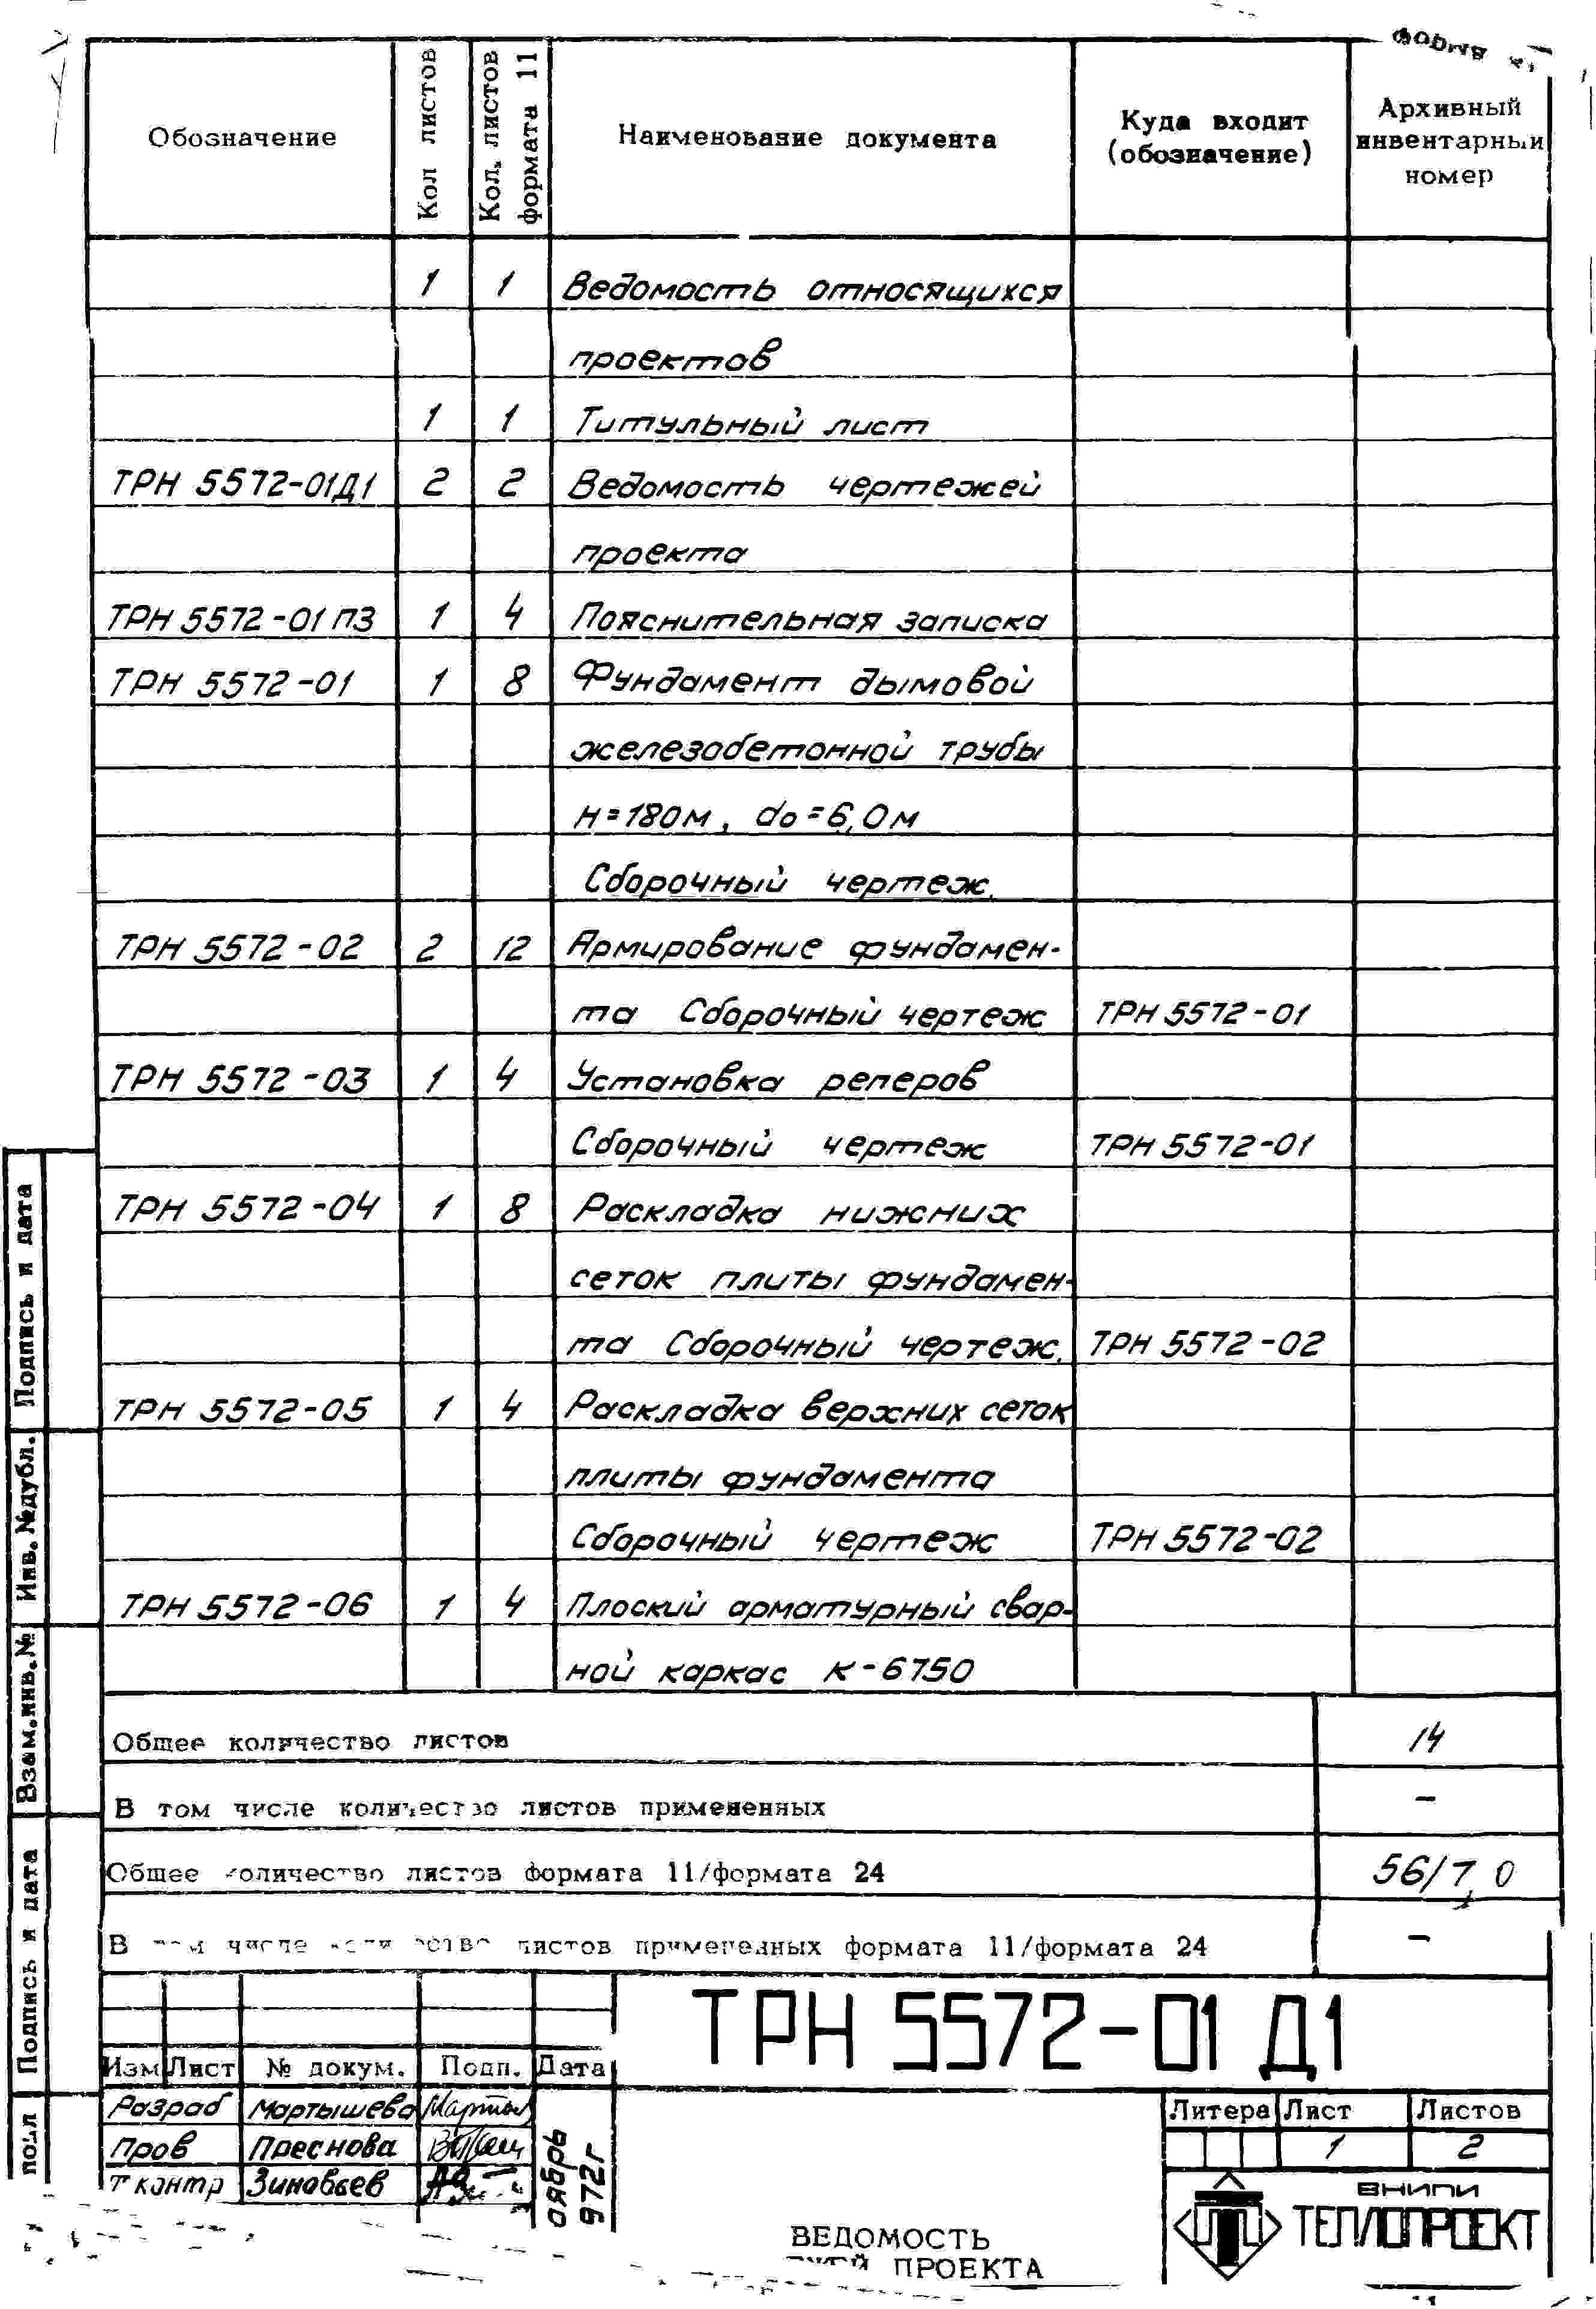 Обозначение
Кол листов
Кол. листов формата 11
Наименование документа
Куда входит
(обозначение)
Архивный
инвентарный
номер
1 1 Ведомость относящихся
проектов
1 1 Титульный лист
ТРН 5572-01Д1 2 2 Ведомость чертежей
проекта
ТРН 5572-01 ПЗ 1 4 Пояснительная записка
ТРН 5572-01 1 8 Фундамент дымовой
железобетонной трубы
H=180м, do=6,0м
Сборочный чертеж.
ТРН 5572-02 2 12 Армирование фундамен-
та Сборочный чертеж ТРН 5572-01
ТРН 5572-03 1 4 Установка реперов
Сборочный чертеж ТРН 5572-01
ТРН 5572-04 1 8 Раскладка нижних
сеток плиты фундамен-
та Сборочный чертеж. ТРН 5572-02
ТРН 5572-05 1 4 Раскладка верхних сеток
плиты фундамента
Сборочный чертеж ТРН 5572-02
ТРН 5572-06 1 4 Плоский арматурный свар-
ной каркас К-6750
Общее количество листов 14
В том числе количество листов примененных -
Общее количество листов формата 11/формата 24 56/7,0
В том числе количество листов примененных формата 11/формата 24 -
Подпись и дата
Инв. №дубл.
Взам.инв.№
Подпись и дата
подл
ТРН 5572-01 Д1
Изм Лист № докум. Подп. Дата
Разраб Мартышева
Пров Преснова
т контр Зиновьев
оябрь
972г
Литера Лист Листов
1 2
ВНИПИ
ТЕПЛОПРОЕКТ
ВЕДОМОСТЬ
ПРОЕКТА